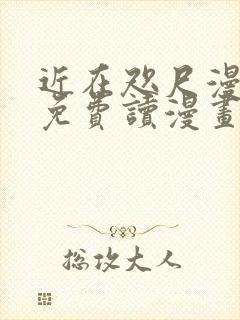 近在咫尺漫
免費讀漫畫
总攻大人